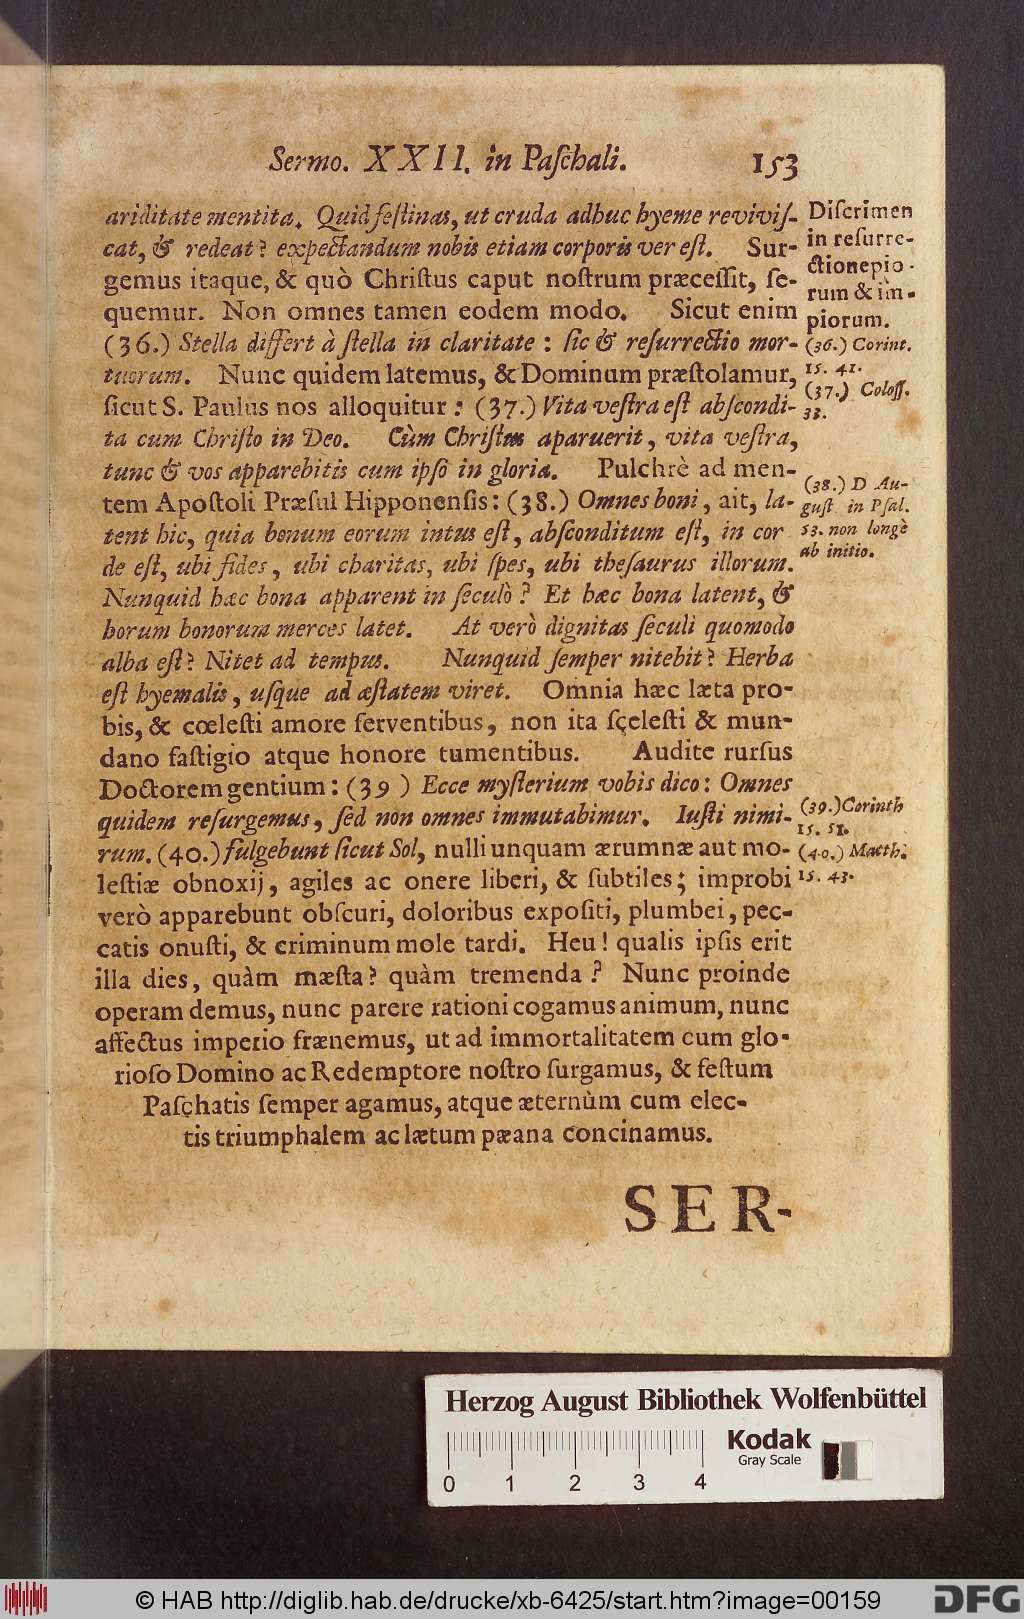 Sermo. XXII. in Paſchali. 153
ariditate mentita. Quid feſtinas, ut cruda adhuc hyeme reviviſ-
cat, & redeat? expectandum nobis etiam corporis ver eſt. Sur-
gemus itaque, & quò Chriſtus caput noſtrum præceſſit, ſe-
quemur. Non omnes tamen eodem modo. Sicut enim
(36.) Stella differt à ſtella in claritate : ſic & reſurrectio mor-
tuorum. Nunc quidem latemus, & Dominum præſtolamur,
ſicut S. Paulus nos alloquitur : (37.) Vita veſtra eſt abſcondi-
ta cum Chriſto in Deo. Cùm Chriſtus aparuerit, vita veſtra,
tunc & vos apparebitis cum ipſô in gloria. Pulchrè ad men-
tem Apoſtoli Præſul Hipponenſis: (38.) Omnes boni, ait, la-
tent hic, quia bonum eorum intus eſt, abſconditum eſt, in cor
de eſt, ubi fides, ubi charitas, ubi ſpes, ubi theſaurus illorum.
Nunquid hæc bona apparent in ſeculò? Et hæc bona latent, &
horum bonorum merces latet. At verò dignitas ſeculi quomodo
alba eſt? Nitet ad tempus. Nunquid ſemper nitebit? Herba
eſt hyemalis, uſque ad æſtatem viret. Omnia hæc læta pro-
bis, & cœleſti amore ferventibus, non ita ſçeleſti & mun-
dano faſtigio atque honore tumentibus. Audite rurſus
Doctorem gentium: (39 ) Ecce myſterium vobis dico: Omnes
quidem reſurgemus, ſed non omnes immutabimur. Iuſti nimi-
rum. (40.) fulgebunt ſicut Sol, nulli unquam ærumnæ aut mo-
leſtiæ obnoxij, agiles ac onere liberi, & ſubtiles; improbi
verò apparebunt obſcuri, doloribus expoſiti, plumbei, pec-
catis onuſti, & criminum mole tardi. Heu! qualis ipſis erit
illa dies, quàm mæſta? quàm tremenda? Nunc proinde
operam demus, nunc parere rationi cogamus animum, nunc
affectus imperio frænemus, ut ad immortalitatem cum glo-
rioſo Domino ac Redemptore noſtro ſurgamus, & feſtum
Paſçhatis ſemper agamus, atque æternùm cum elec-
tis triumphalem ac lætum pæana concinamus.
SER-
Diſcrimen
in reſurre-
ctione pio-
rum & im-
piorum.
(36.) Corint.
15. 41.
(37.) Coloſſ.
33.
(38.) D Au-
guſt. in Pſal.
53. non longè
ab initio.
(39.) Corinth
15. 51.
(40.) Matth.
15. 43.
Herzog August Bibliothek Wolfenbüttel
Kodak
Gray Scale
0 1 2 3 4
© HAB http://diglib.hab.de/drucke/xb-6425/start.htm?image=00159
DFG